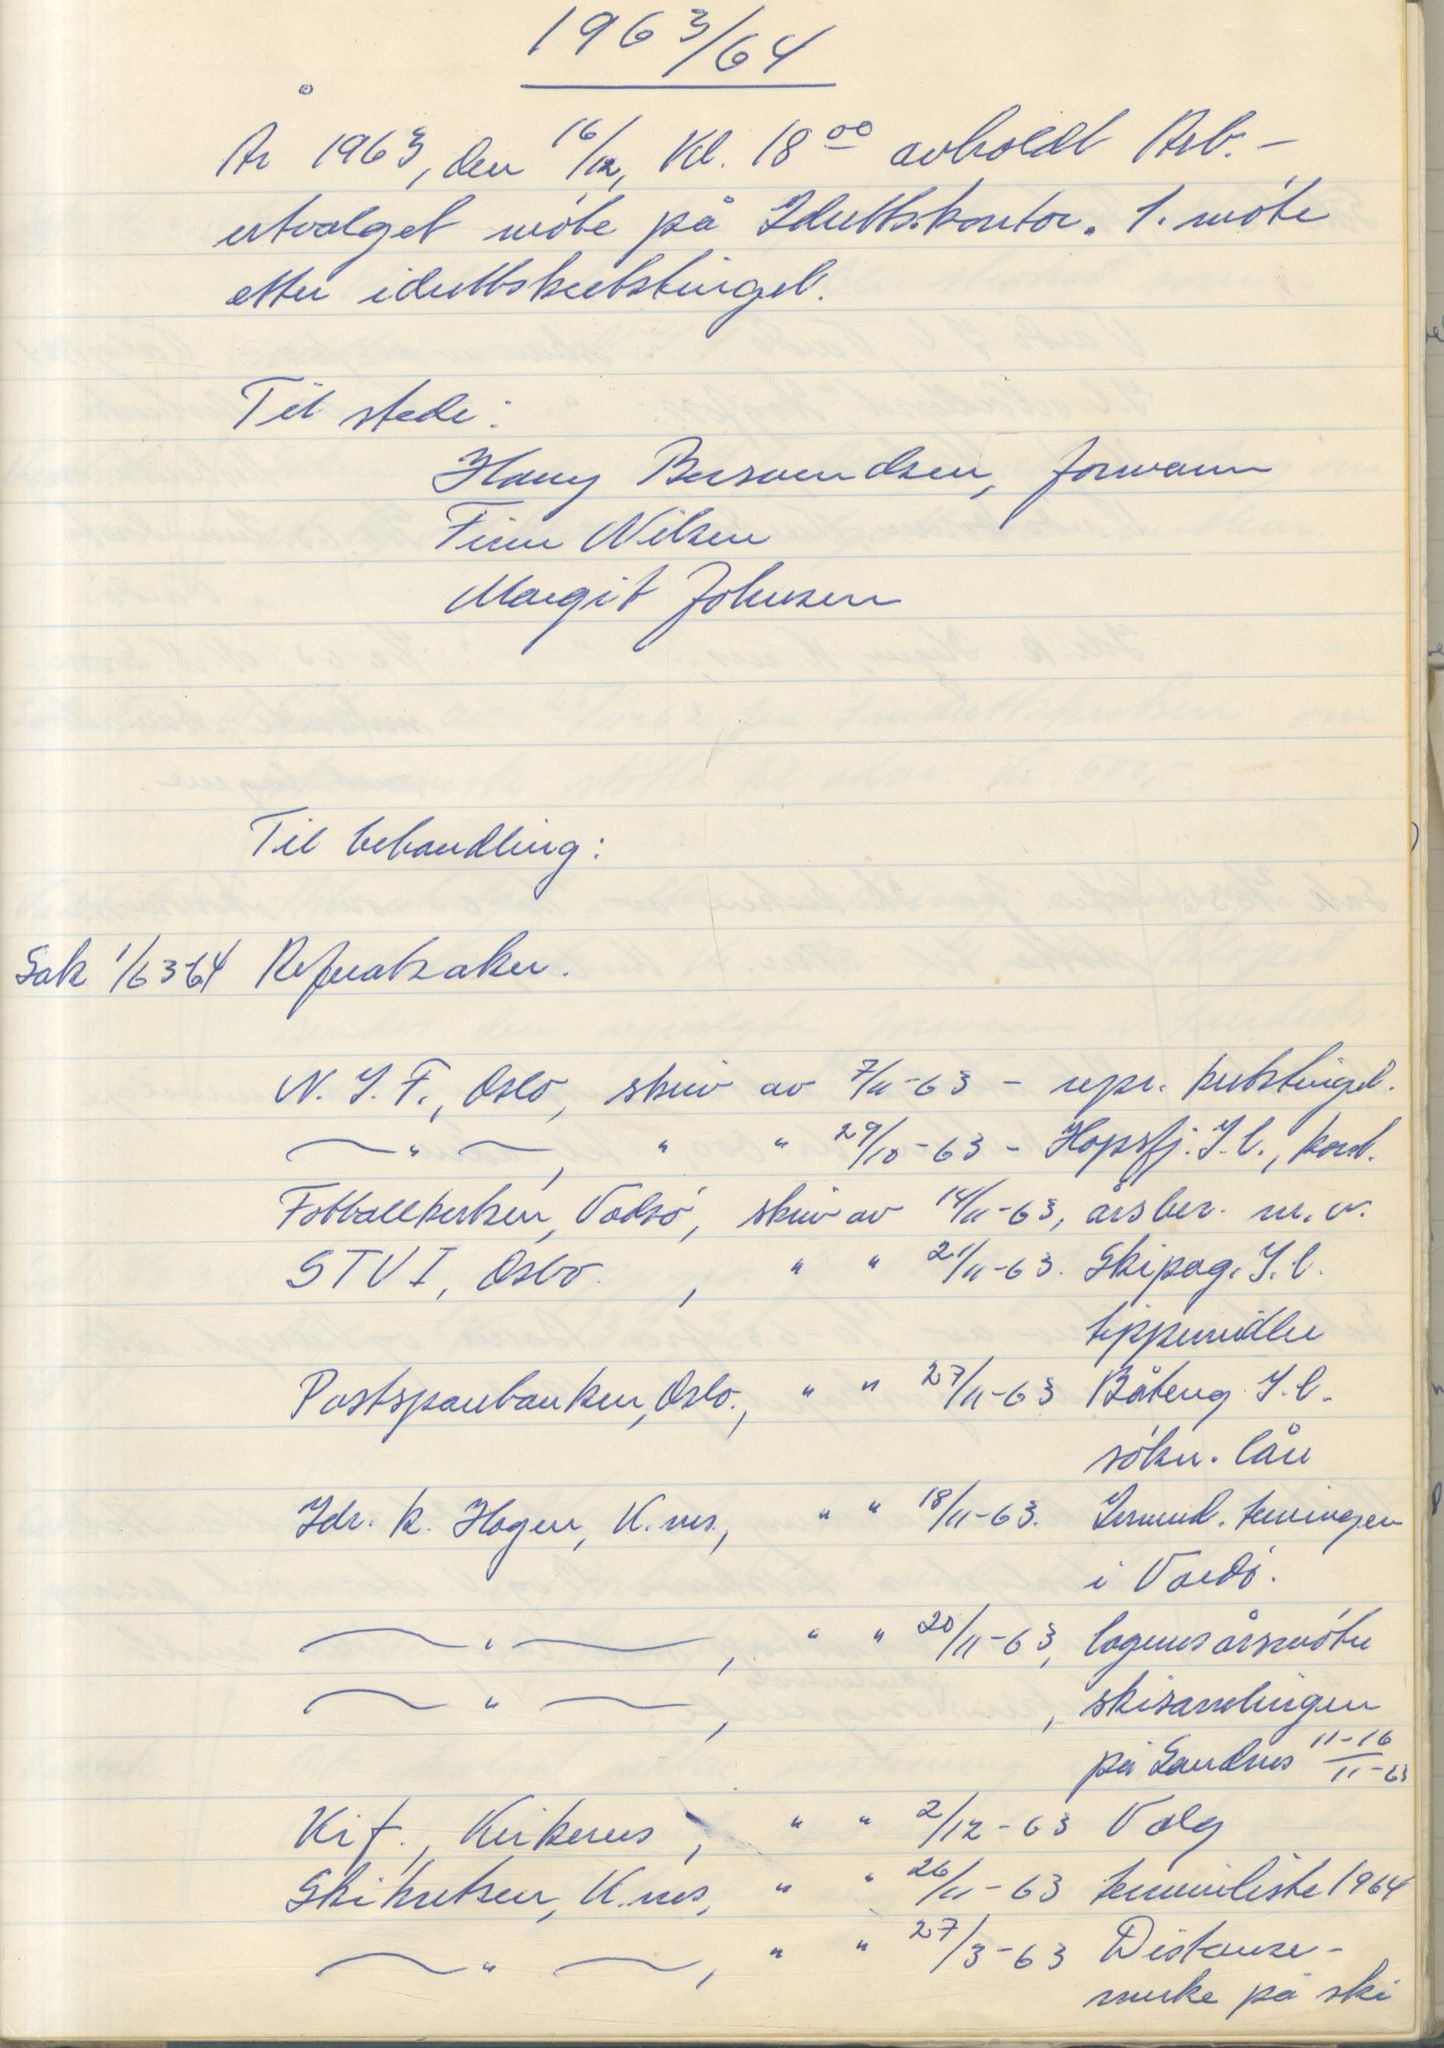 1963/64
År 1963, den 16/12, kl. 18 00 avholdt Arb.-
utvalget møte på Idrettskontor. 1. møte
etter idrettskretstinget.
Til stede:
Harry Bersvendsen, formann
Finn Nilsen
Margit Johnsen
Til behandling:
Sak 1/63-64 Referatsaker.
N. I. F., Oslo, skriv av 7/11-63 - repr. kretstinget.
— " —, " " 29/10-63 - Hopsfj. I.l.,
Fotballkretsen, Vadsø, skriv av 14/11-63, årsber. m.v.
STUI, Oslo, " " 21/11-63. Skipag. I.l.
tippemidler
Postsparebanken, Oslo., " " 27/11-63 Båteng I.l.
søkn. lån
Idr. k. Hagen, K.nes., " " 18/11-63. treningen
i Vardø.
— " —, " " 20/11-63, lagenes årsmøter
— " —, , skisamlingen
på Sandnes 11-16/11-63
Kif., Kirkenes, " " 2/12-63 Valg
Skikretsen, K.nes, " " 26/11-63 terminliste 1964
— " —, " " 27/3-63 Distanse-
merke på ski